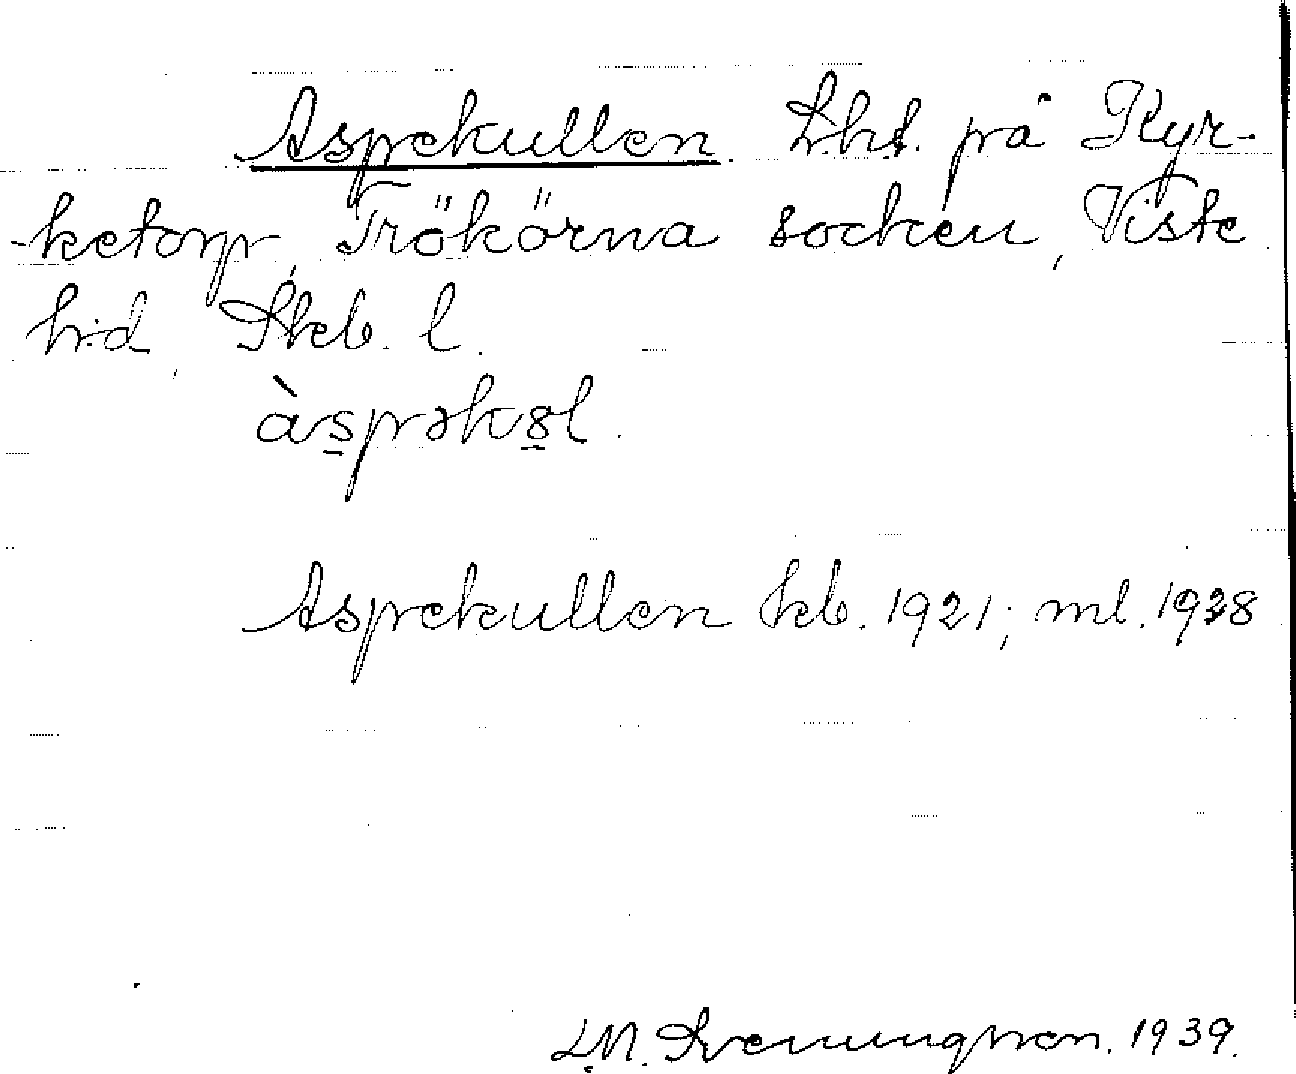 Aspekullen. Lht. på Kyr-
-ketorp, Trökörna socken, Viste
h:d, Skb. l.
àspək8l.
Aspekullen kb. 1921; ml. 1938
L.M. Svenungsson. 1939.